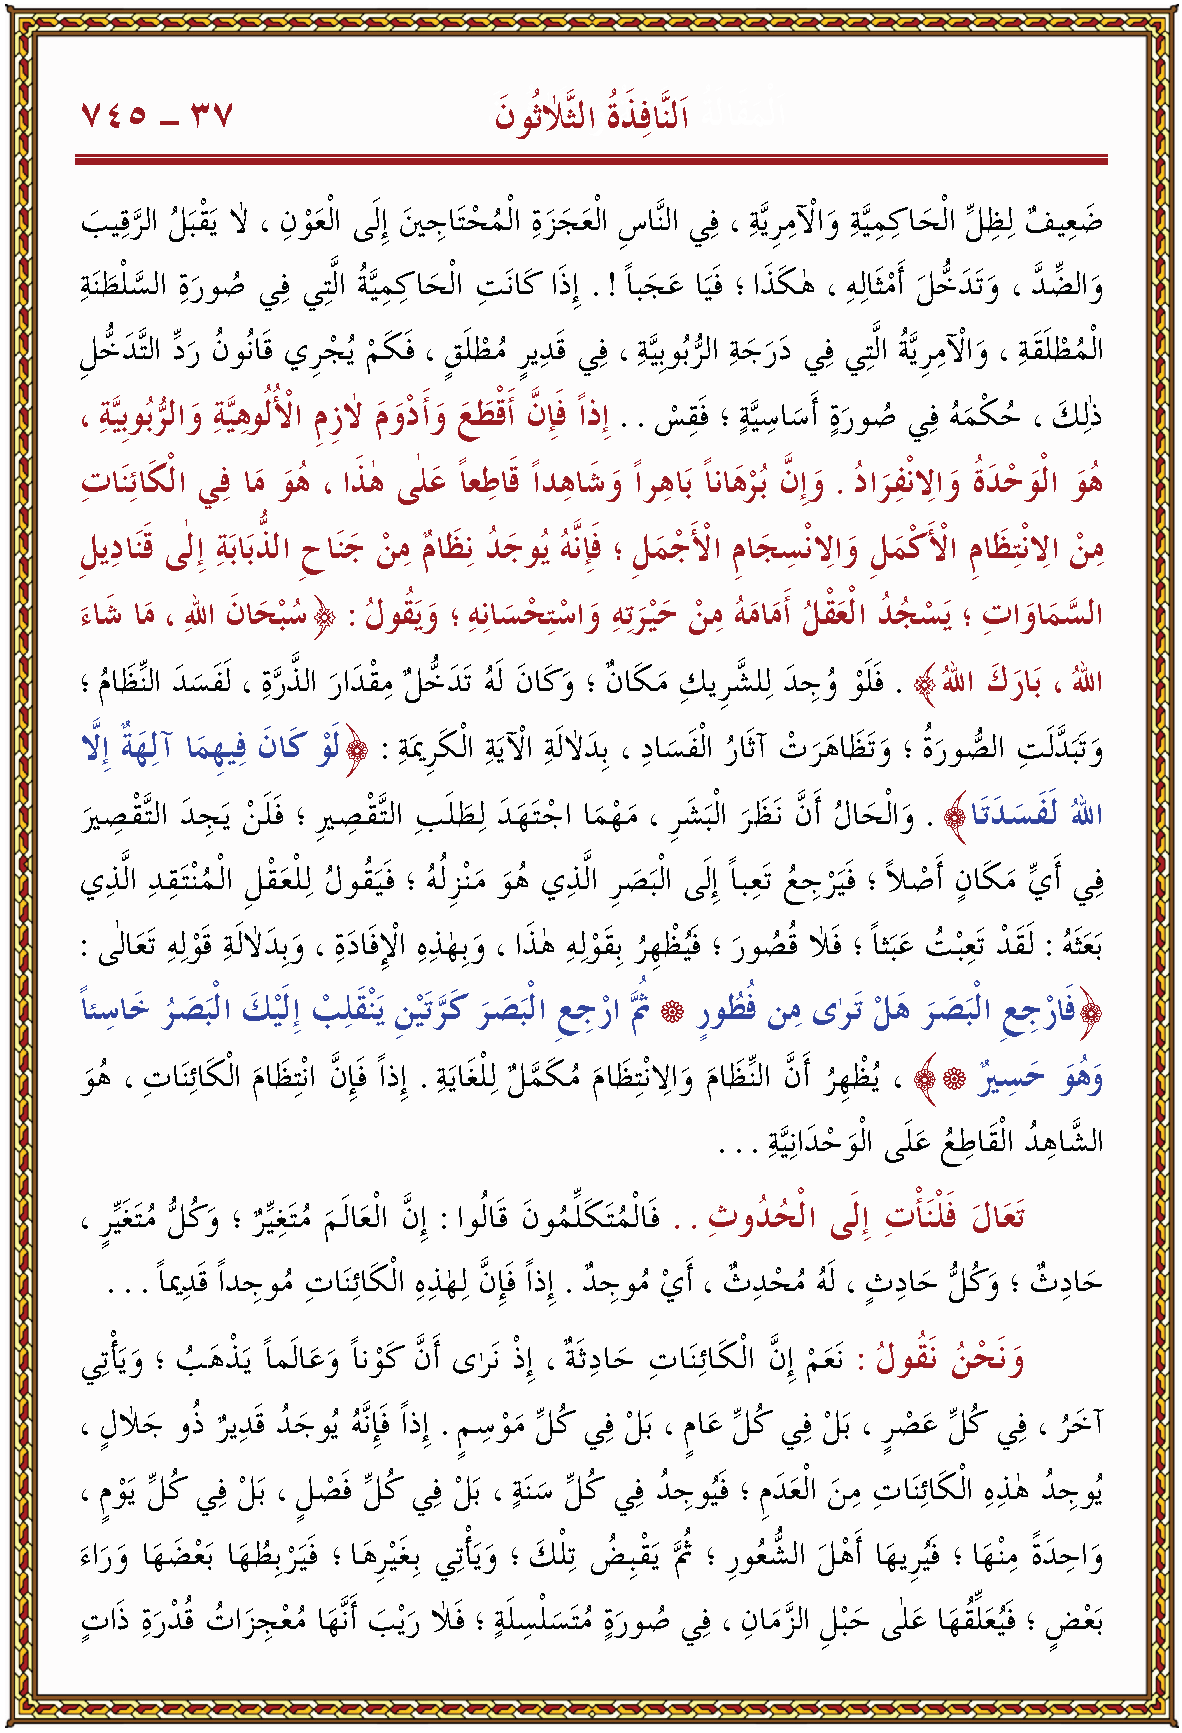 اَلنَّافِذَةُ الثَّلاٰثُونَ ٣٧ ـ ٧٤٥
ضَعِيفٌ لِظِلِّ الْحَاكِمِيَّةِ وَاْلآمِرِيَّةِ ، فِي النَّاسِ الْعَجَزَةِ الْمُحْتَاجِينَ إِلَى الْعَوْنِ ، لاٰ يَقْبَلُ الرَّقِيبَ
وَالضِّدَّ ، وَتَدَخُّلَ أَمْثَالِهِ ، هٰكَذَا ؛ فَيَا عَجَباً ! . إِذَا كَانَتِ الْحَاكِمِيَّةُ الَّتِي فِي صُورَةِ السَّلْطَنَةِ
الْمُطْلَقَةِ ، وَاْلآمِرِيَّةُ الَّتِي فِي دَرَجَةِ الرُّبُوبِيَّةِ ، فِي قَدِيرٍ مُطْلَقٍ ، فَكَمْ يُجْرِي قَانُونُ رَدِّ التَّدَخُّلِ
ذٰلِكَ ، حُكْمَهُ فِي صُورَةٍ أَسَاسِيَّةٍ ؛ فَقِسْ . . إِذاً فَإِنَّ أَقْطَعَ وَأَدْوَمَ لاٰزِمِ اْلأُلُوهِيَّةِ وَالرُّبُوبِيَّةِ ،
هُوَ الْوَحْدَةُ وَاْلاِنْفِرَادُ . وَإِنَّ بُرْهَاناً بَاهِراً وَشَاهِداً قَاطِعاً عَلٰى هٰذَا ، هُوَ مَا فِي الْكَائِنَاتِ
مِنْ اْلاِنْتِظَامِ اْلأَكْمَلِ وَاْلاِنْسِجَامِ اْلأَجْمَلِ ؛ فَإِنَّهُ يُوجَدُ نِظَامٌ مِنْ جَنَاحِ الذُّبَابَةِ إِلٰى قَنَادِيلِ
السَّمَاوَاتِ ؛ يَسْجُدُ الْعَقْلُ أَمَامَهُ مِنْ حَيْرَتِهِ وَاسْتِحْسَانِهِ ؛ وَيَقُولُ : ﴿سُبْحَانَ اللهِ ، مَا شَاءَ
اللهُ ، بَارَكَ اللهُ﴾ . فَلَوْ وُجِدَ لِلشَّرِيكِ مَكَانٌ ؛ وَكَانَ لَهُ تَدَخُّلٌ مِقْدَارَ الذَّرَّةِ ، لَفَسَدَ النِّظَامُ ؛
وَتَبَدَّلَتِ الصُّورَةُ ؛ وَتَظَاهَرَتْ آثَارُ الْفَسَادِ ، بِدَلاٰلَةِ اْلآيَةِ الْكَرِيمَةِ : ﴿لَوْ كَانَ فِيهِمَا آلِهَةٌ إِلاَّ
اللهُ لَفَسَدَتَا﴾ . وَالْحَالُ أَنَّ نَظَرَ الْبَشَرِ ، مَهْمَا اجْتَهَدَ لِطَلَبِ التَّقْصِيرِ ؛ فَلَنْ يَجِدَ التَّقْصِيرَ
فِي أَيِّ مَكَانٍ أَصْلاً ؛ فَيَرْجِعُ تَعِباً إِلَى الْبَصَرِ الَّذِي هُوَ مَنْزِلُهُ ؛ فَيَقُولُ لِلْعَقْلِ الْمُنْتَقِدِ الَّذِي
بَعَثَهُ : لَقَدْ تَعِبْتُ عَبَثاً ؛ فَلاٰ قُصُورَ ؛ فَيُظْهِرُ بِقَوْلِهِ هٰذَا ، وَبِهٰذِهِ اْلإِفَادَةِ ، وَبِدَلاٰلَةِ قَوْلِهِ تَعَالٰى :
﴿فَارْجِعِ الْبَصَرَ هَلْ تَرٰى مِن فُطُورٍ ۞ ثُمَّ ارْجِعِ الْبَصَرَ كَرَّتَيْنِ يَنْقَلِبْ إِلَيْكَ الْبَصَرُ خَاسِئاً
وَهُوَ حَسِيرٌ ۞﴾ ، يُظْهِرُ أَنَّ النِّظَامَ وَاْلاِنْتِظَامَ مُكَمَّلٌ لِلْغَايَةِ . إِذاً فَإِنَّ انْتِظَامَ الْكَائِنَاتِ ، هُوَ
الشَّاهِدُ الْقَاطِعُ عَلَى الْوَحْدَانِيَّةِ . . .
تَعَالَ فَلْنَأْتِ إِلَى الْحُدُوثِ . . فَالْمُتَكَلِّمُونَ قَالُوا : إِنَّ الْعَالَمَ مُتَغِيِّرٌ ؛ وَكُلُّ مُتَغَيِّرٍ ،
حَادِثٌ ؛ وَكُلُّ حَادِثٍ ، لَهُ مُحْدِثٌ ، أَيْ مُوجِدٌ . إِذاً فَإِنَّ لِهٰذِهِ الْكَائِنَاتِ مُوجِداً قَدِيماً . . .
وَنَحْنُ نَقُولُ : نَعَمْ إِنَّ الْكَائِنَاتِ حَادِثَةٌ ، إِذْ نَرٰى أَنَّ كَوْناً وَعَالَماً يَذْهَبُ ؛ وَيَأْتِي
آخَرُ ، فِي كُلِّ عَصْرٍ ، بَلْ فِي كُلِّ عَامٍ ، بَلْ فِي كُلِّ مَوْسِمٍ . إِذاً فَإِنَّهُ يُوجَدُ قَدِيرٌ ذُو جَلاٰلٍ ،
يُوجِدُ هٰذِهِ الْكَائِنَاتِ مِنَ الْعَدَمِ ؛ فَيُوجِدُ فِي كُلِّ سَنَةٍ ، بَلْ فِي كُلِّ فَصْلٍ ، بَلْ فِي كُلِّ يَوْمٍ ،
وَاحِدَةً مِنْهَا ؛ فَيُرِيهَا أَهْلَ الشُّعُورِ ؛ ثُمَّ يَقْبِضُ تِلْكَ ؛ وَيَأْتِي بِغَيْرِهَا ؛ فَيَرْبِطُهَا بَعْضَهَا وَرَاءَ
بَعْضٍ ؛ فَيُعَلِّقُهَا عَلٰى حَبْلِ الزَّمَانِ ، فِي صُورَةٍ مُتَسَلْسِلَةٍ ؛ فَلاٰ رَيْبَ أَنَّهَا مُعْجِزَاتُ قُدْرَةِ ذَاتٍ